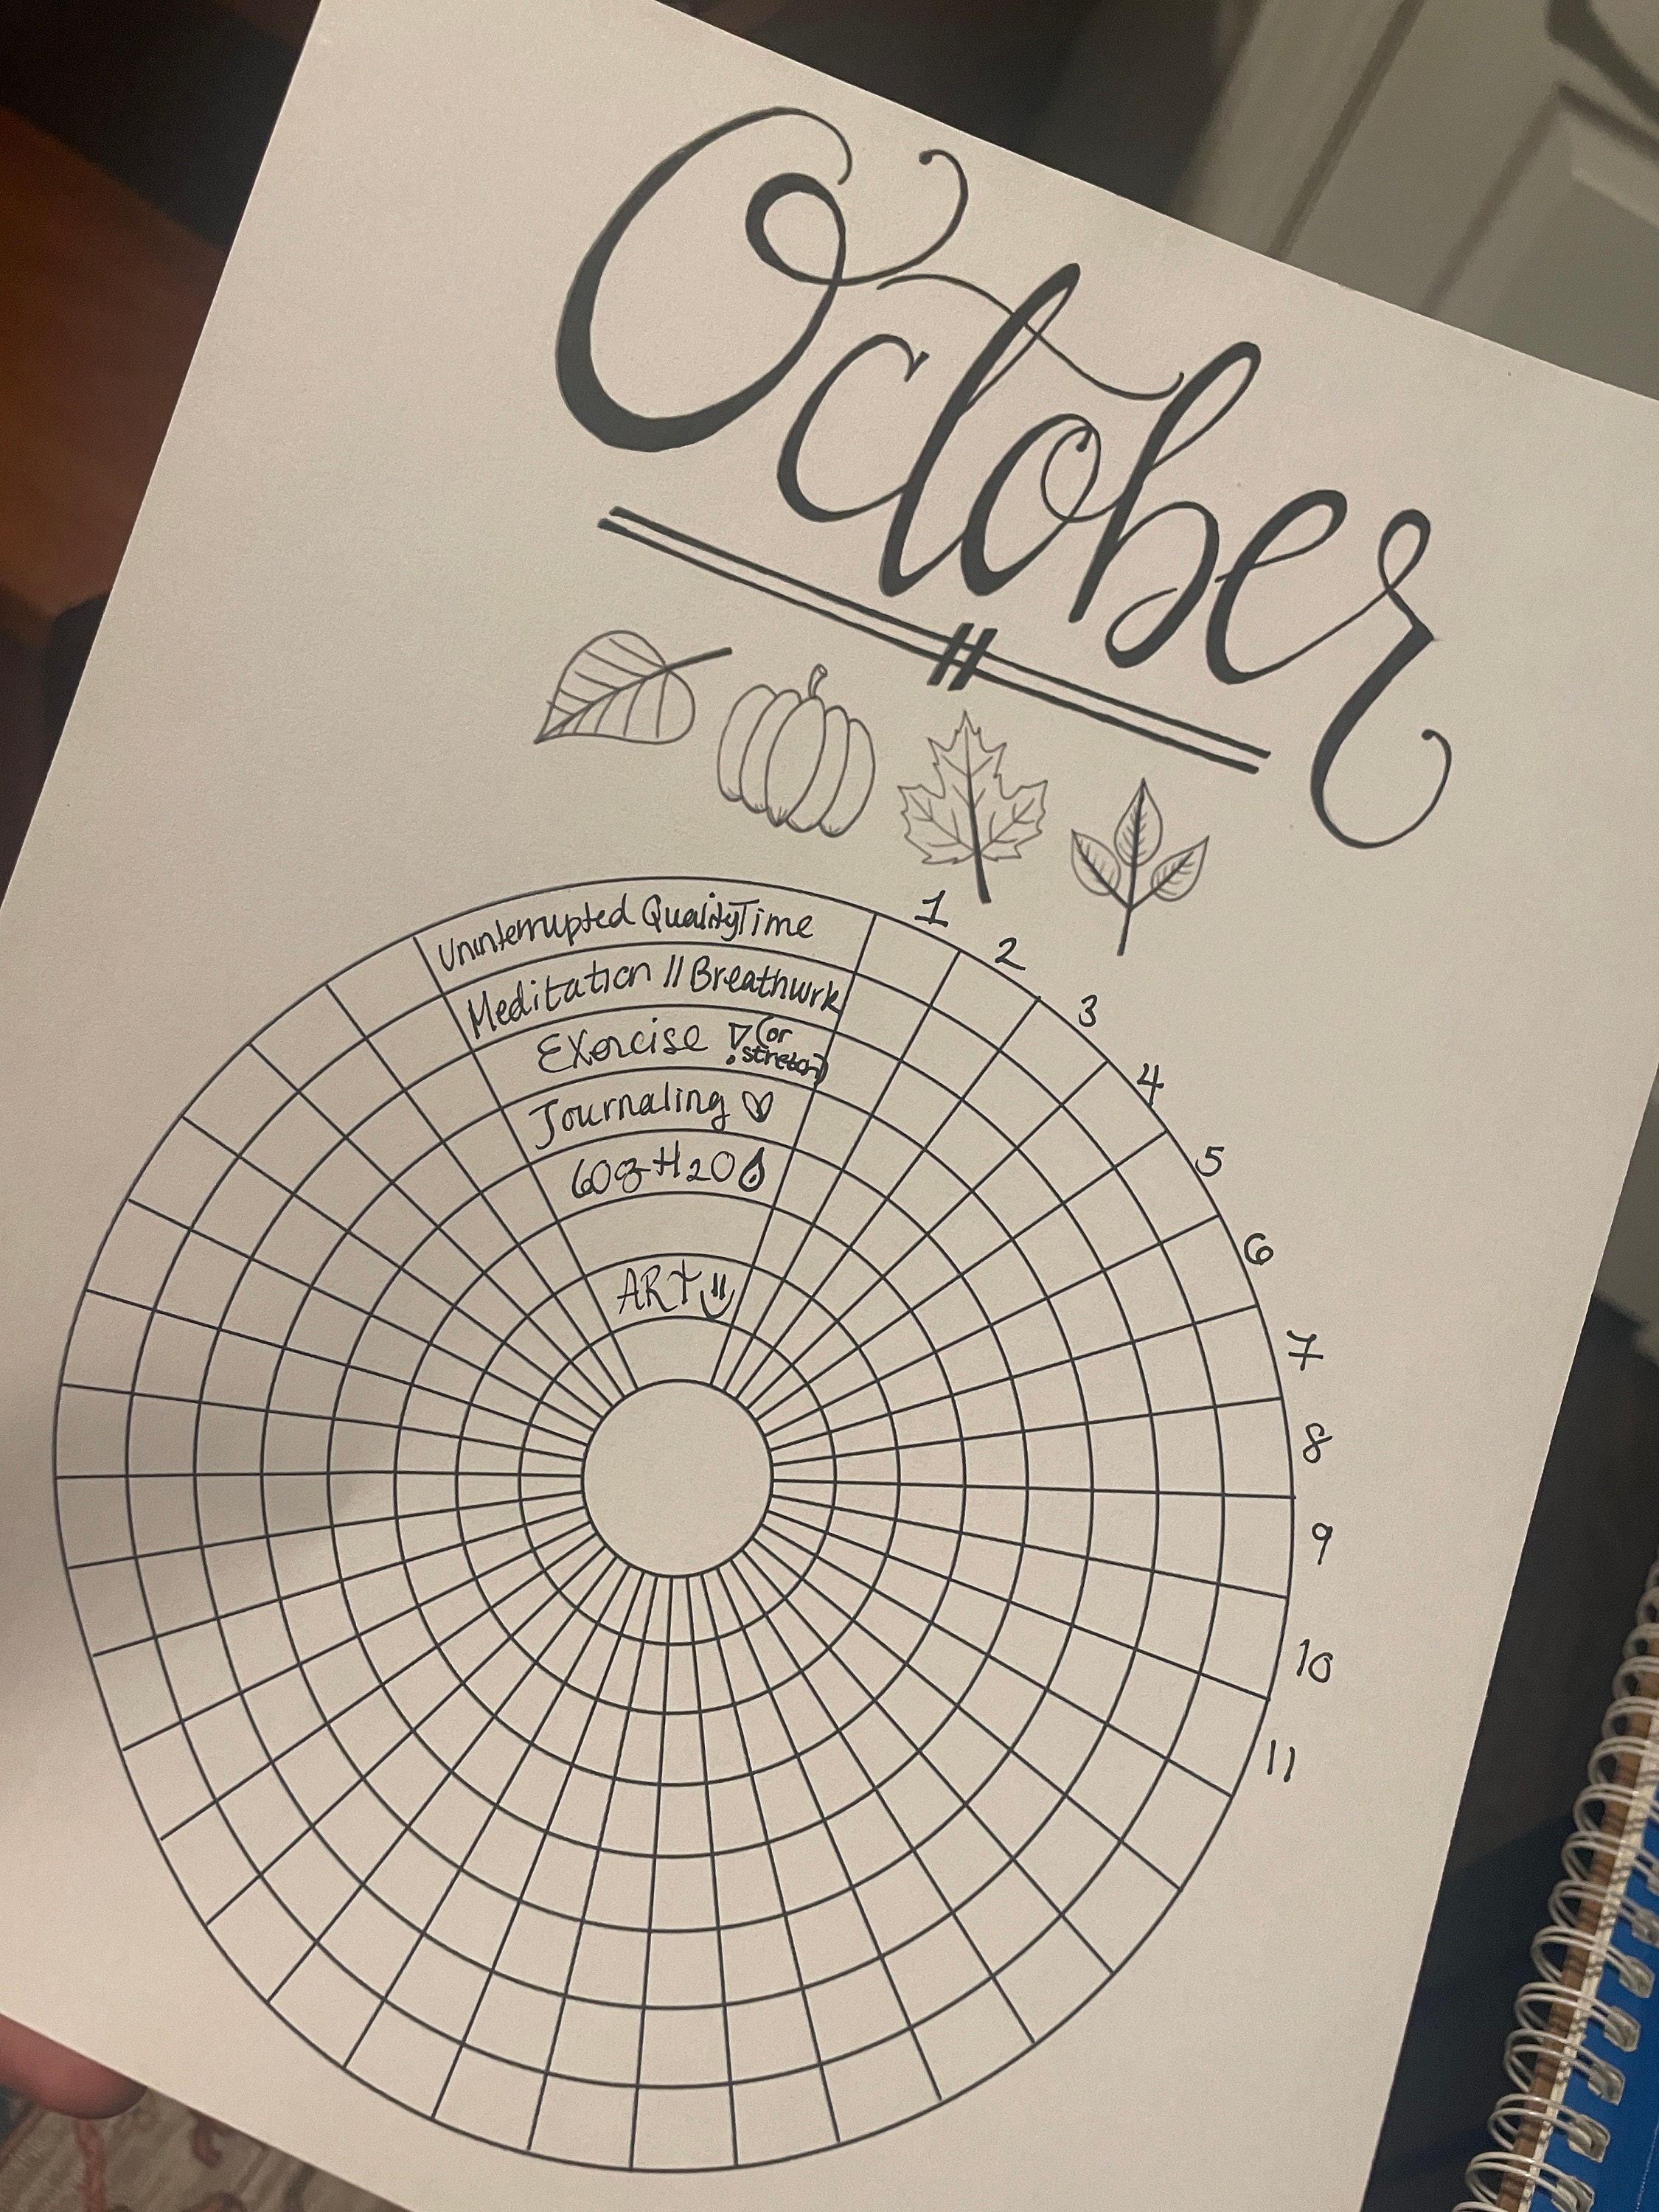 October
Uninterrupted Quality Time
Meditation // Breathwrk
Exercise ! (or
stretch)
Journaling ♡
60oz H2O
ART
1
2
3
4
5
6
7
8
9
10
11